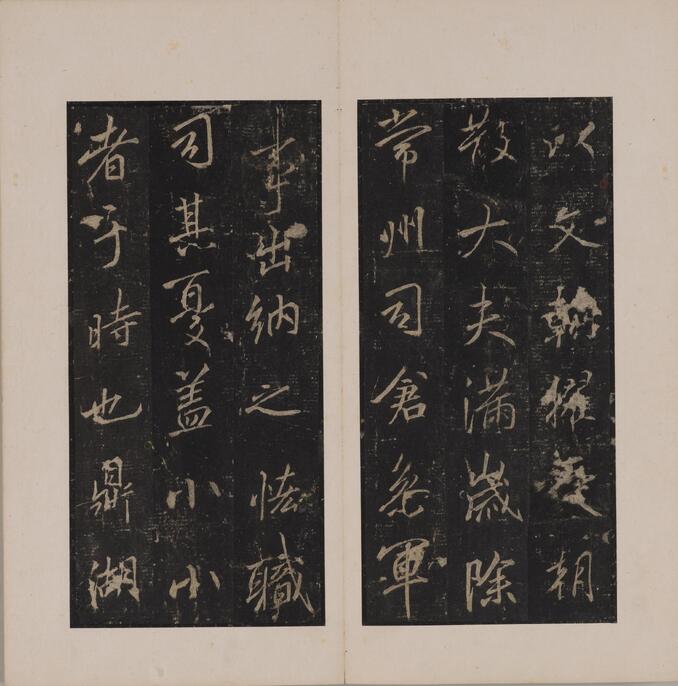 以文翰擢朝
散大夫滿歲除
常州司倉叅軍
事出納之恡職
司其憂盖小小
者于時也鼎湖